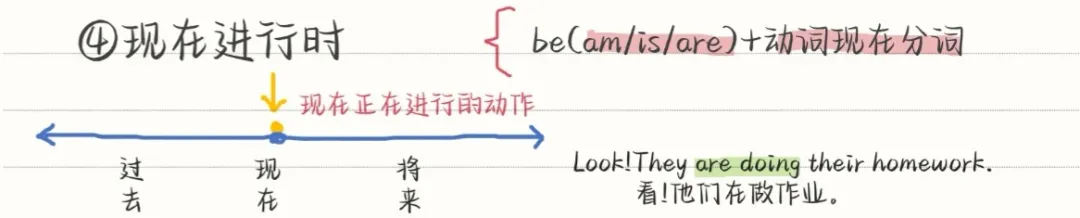 ④现在进行时
be(am/is/are)+动词现在分词
现在正在进行的动作
过去
现在
将来
Look!They are doing their homework.
看!他们在做作业。